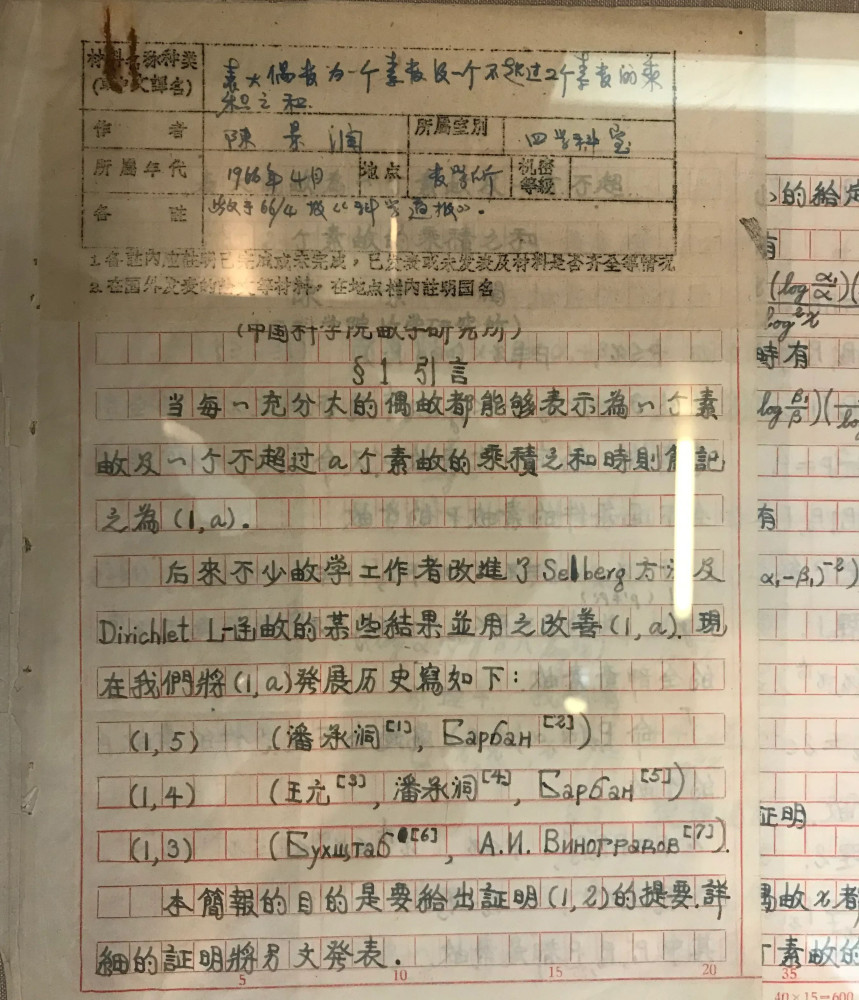 材料名称种类
(或中文譯名)
表大偶数为一个素数及一个不超过2个素数的乘
积之和.
作者 陳景润 所屬室別 四学科室
所屬年代 1966年4月 地点 数学所 机密等級
备註 66/4 《科学通报》.
1.各註內应註明已完成或未完成，已发表或未发表及材料是否齐全等情况
2.在国外发表的等材料，在地点栏內註明国名
(中国科学院数学研究所)
§1 引言
当每一充分大的偶数都能够表示為一个素
数及一个不超过a个素数的乘積之和時則簡記
之為(1,a).
后來不少数学工作者改進了Selberg方法及
Dirichlet L-函数的某些結果並用之改善(1,a). 現
在我們將(1,a)發展历史寫如下:
(1,5) (潘承洞[1], Барбан[2])
(1,4) (王元[3], 潘承洞[4], Барбан[5])
(1,3) (Бухштаб[6], А.И. Виноградов[7]).
本簡報的目的是要給出証明(1,2)的提要.詳
細的証明將另文發表.
5 10 15 20
的給定
有
log²x
時有
有
α₁-β₁)
証明
偶数x者
素数的
35
40×15=600